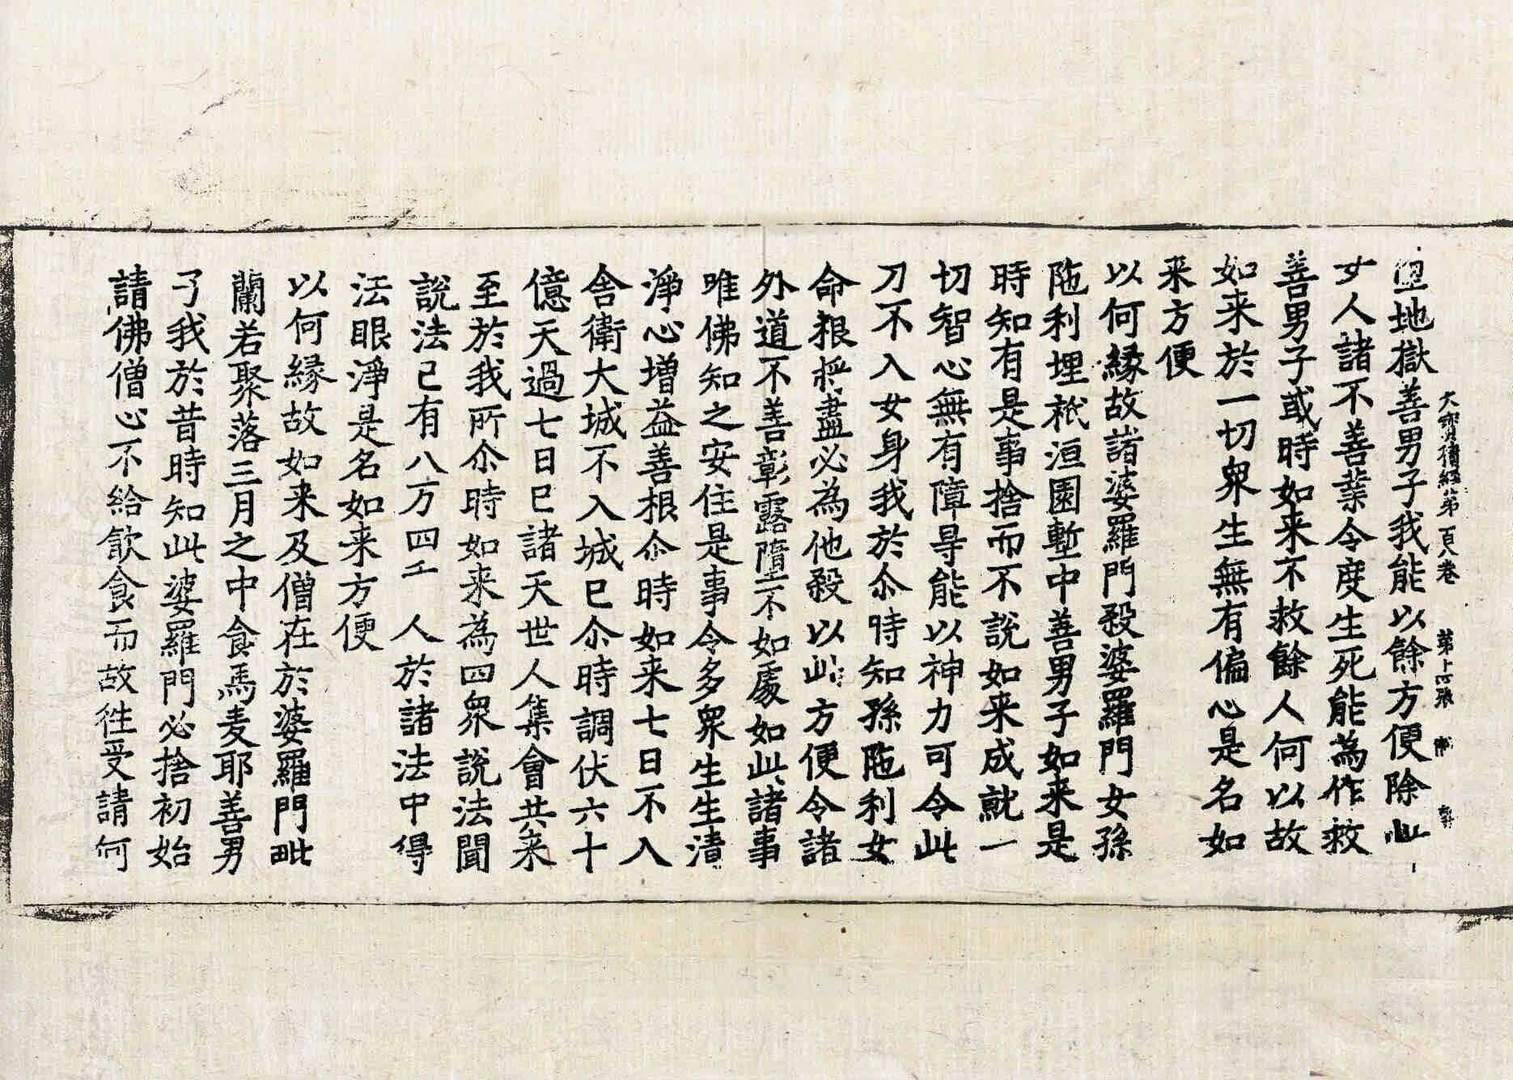 大寶積經第一百八卷 第十四張
恒地獄善男子我能以餘方便除此
女人諸不善業令度生死能為作救
善男子或時如来不救餘人何以故
如来於一切衆生無有偏心是名如
来方便
以何縁故諸婆羅門殺婆羅門女孫
陁利埋祇洹園塹中善男子如来是
時知有是事捨而不說如来成就一
切智心無有障㝵能以神力可令此
刀不入女身我於尒時知孫陁利女
命根将盡必為他殺以此方便令諸
外道不善彰露墮不如處如此諸事
唯佛知之安住是事令多衆生生清
淨心增益善根尒時如来七日不入
舎衛大城不入城已尒時調伏六十
億天過七日已諸天世人集會共来
至於我所尒時如来為四衆說法聞
說法已有八万四千人於諸法中得
法眼淨是名如来方便
以何縁故如来及僧在於婆羅門毗
蘭若聚落三月之中食馬麦耶善男
子我於昔時知此婆羅門必捨初始
請佛僧心不給飲食而故徃受請何